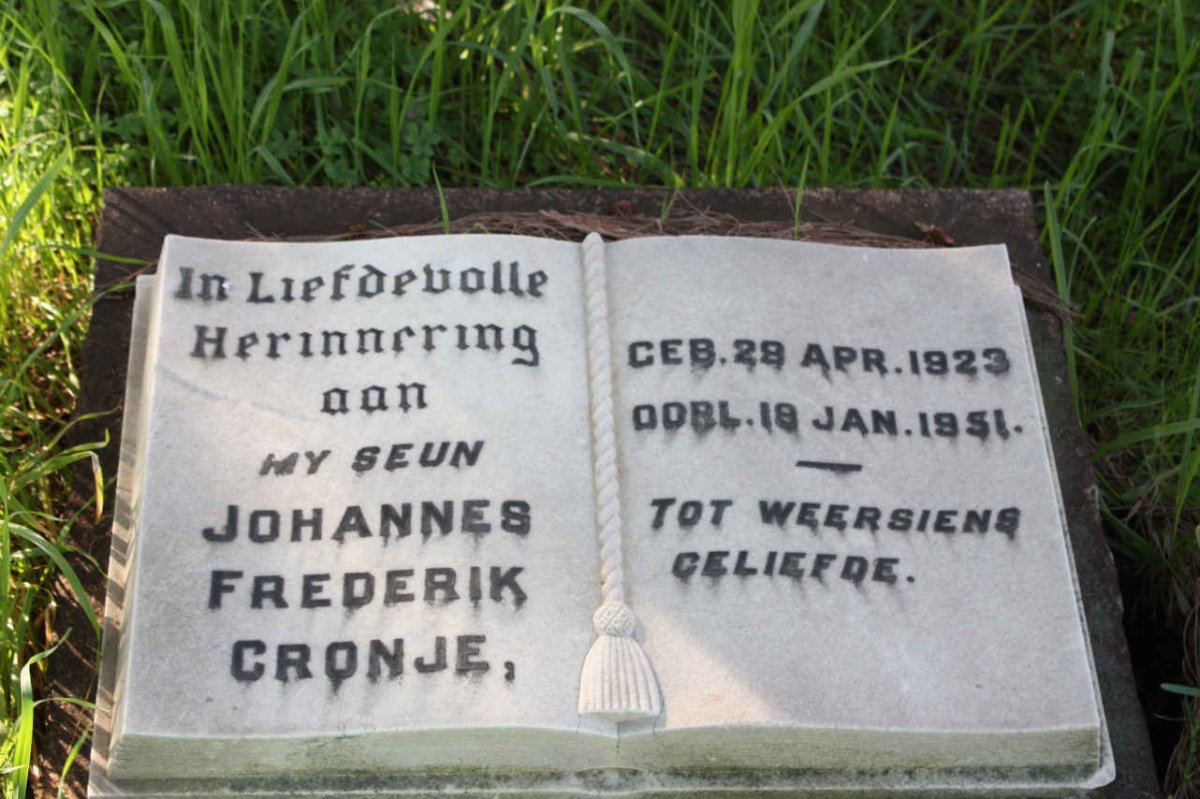 In Liefdevolle
Herinnering
aan
MY SEUN
JOHANNES
FREDERIK
CRONJE,
GEB. 28 APR. 1923
OORL. 18 JAN. 1951.
TOT WEERSIENS
GELIEFDE.